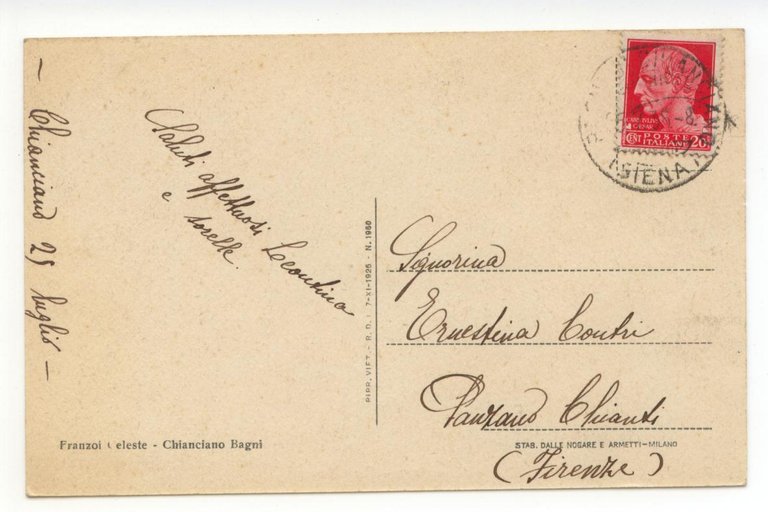 - Chianciano 25 luglio -
Saluti affettuosi Leontina
e sorelle.
Signorina
Ernestina Contri
Panzano Chianti
(Firenze)
Franzoi Celeste - Chianciano Bagni
RIPR. VIET. - R. D. L. 7-XI-1925 - N. 1950
STAB. DALLE NOGARE E ARMETTI-MILANO
CAIVS IVLIVS
CAESAR
CENT POSTE ITALIANE 20
(SIENA)